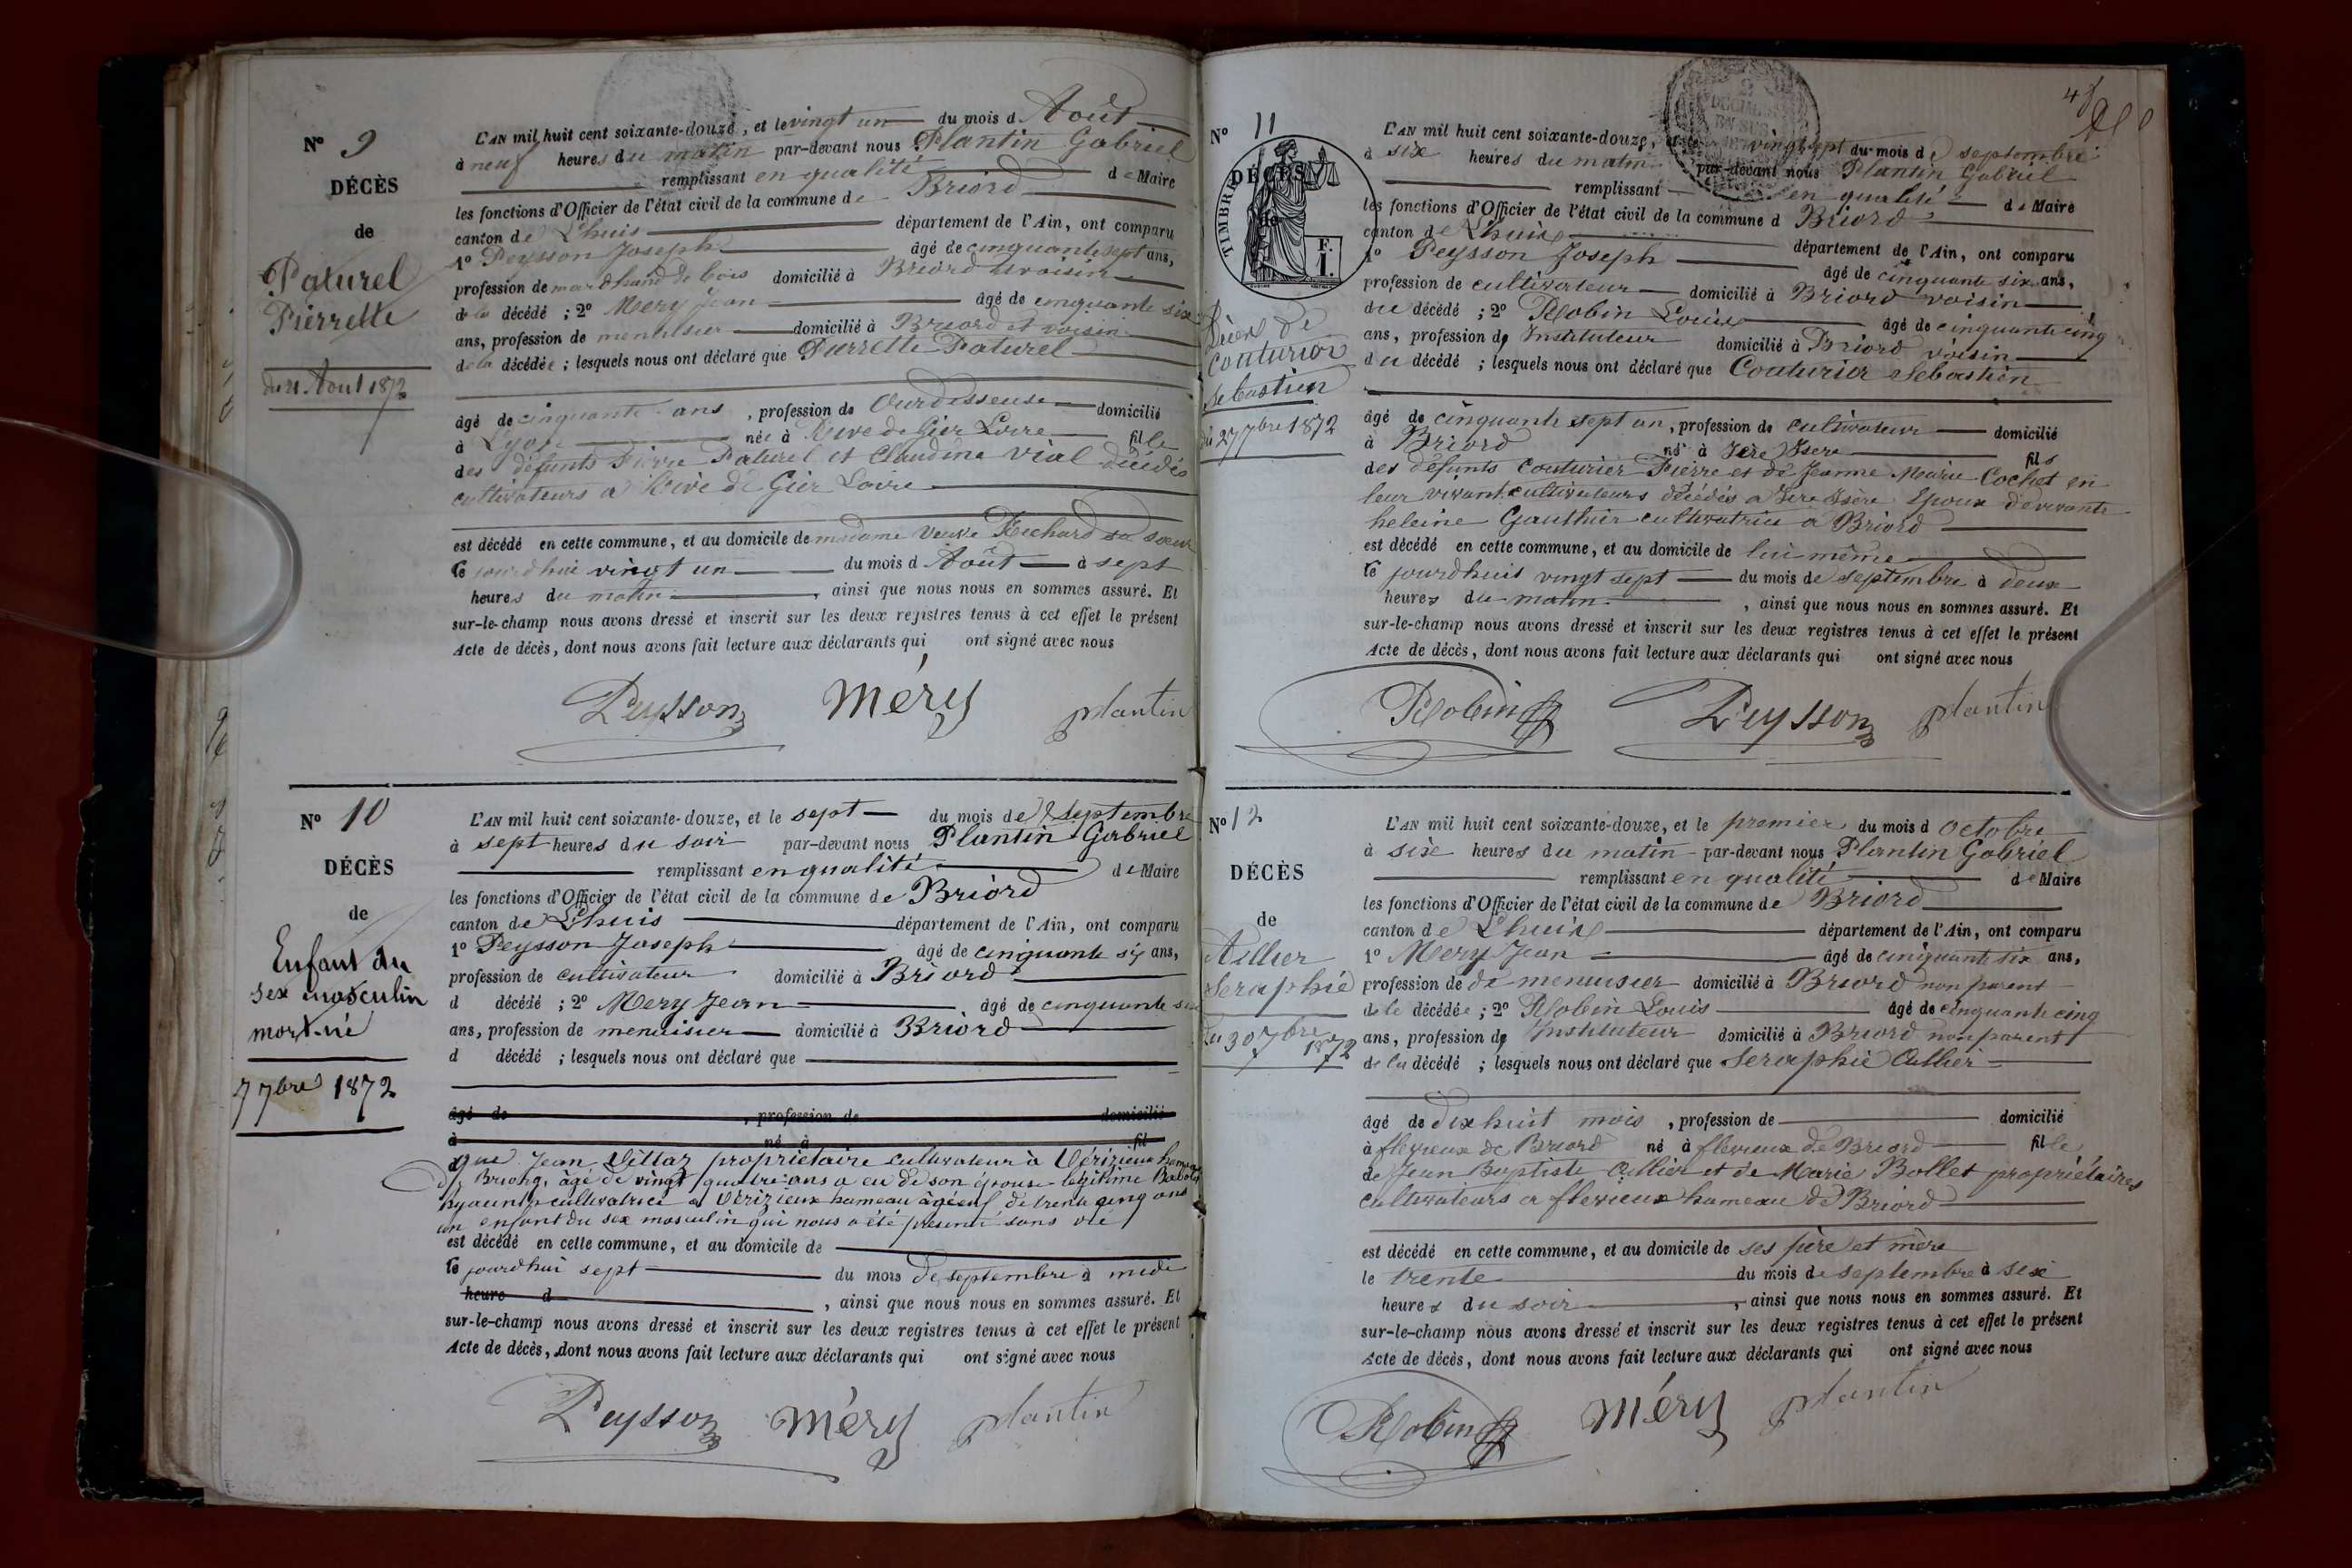 N° 9
DÉCÈS
de
Paturel
Pierrette
du 21 Aout 1872
L'AN mil huit cent soixante-douze, et le vingt un du mois d Août
à neuf heures du matin par-devant nous Plantin Gabriel
remplissant en qualité de Maire
les fonctions d'Officier de l'état civil de la commune de Briord
canton de Lhuis département de l'Ain, ont comparu
1° Peysson Joseph âgé de cinquante sept ans,
profession de marchand de bois domicilié à Briord voisin
de la décédé ; 2° Mery Jean âgé de cinquante six
ans, profession de menuisier domicilié à Briord et voisin
de la décédée ; lesquels nous ont déclaré que Pierrette Paturel
âgé de cinquante ans , profession de Ourdisseuse domicilié
à Lyon née à Rive de Gier Loire fille
des défunts Pierre Paturel et Claudine Vial décédés
cultivateurs a Rive de Gier Loire
est décédé en cette commune, et au domicile de madame veuve Richard sa soeur
ce jourdhui vingt un du mois d Août à sept
heures du matin , ainsi que nous nous en sommes assuré. Et
sur-le-champ nous avons dressé et inscrit sur les deux registres tenus à cet effet le présent
Acte de décès, dont nous avons fait lecture aux déclarants qui ont signé avec nous
Peysson Méry plantin
N° 10
DÉCÈS
de
Enfant du
sex masculin
mort-né
7 7bre 1872
L'AN mil huit cent soixante-douze, et le sept du mois de Septembre
à sept heures du soir par-devant nous Plantin Gabriel
remplissant en qualité de Maire
les fonctions d'Officier de l'état civil de la commune de Briord
canton de Lhuis département de l'Ain, ont comparu
1° Peysson Joseph âgé de cinquante six ans,
profession de cultivateur domicilié à Briord
d décédé ; 2° Mery Jean âgé de cinquante six
ans, profession de menuisier domicilié à Briord
d décédé ; lesquels nous ont déclaré que
âgé de , profession de domicilié
à né à fil
que Jean Vettaz propriétaire cultivateur à Vérizieux hameau
de âgé de vingt quatre ans a eu de son épouse légitime
cultivatrice a Vérizieux hameau âgée de trente cinq ans
un enfant du sex masculin qui nous a été présenté sans vie
est décédé en cette commune, et au domicile de
ce jourdhui sept du mois de septembre à midi
heure d , ainsi que nous nous en sommes assuré. Et
sur-le-champ nous avons dressé et inscrit sur les deux registres tenus à cet effet le présent
Acte de décès, dont nous avons fait lecture aux déclarants qui ont signé avec nous
Peysson Méry plantin
N° 11
DÉCÈS
de
TIMBRE
F. I.
Décès de
Couturier
Sebastien
du 27 7bre 1872
L'AN mil huit cent soixante-douze, et le vingt sept du mois de septembre
à six heures du matin par-devant nous Plantin Gabriel
remplissant en qualité de Maire
les fonctions d'Officier de l'état civil de la commune d Briord
canton de Lhuis département de l'Ain, ont comparu
1° Peysson Joseph âgé de cinquante six ans,
profession de cultivateur domicilié à Briord voisin
du décédé ; 2° Robin Louis âgé de cinquante cinq
ans, profession de Instituteur domicilié à Briord voisin
du décédé ; lesquels nous ont déclaré que Couturier Sebastien
âgé de cinquante sept an , profession de cultivateur domicilié
à Briord né à Isère fils
des défunts Couturier Pierre et de Jeanne Marie Cochet en
leur vivant cultivateurs décédés a Isère Epoux
heleine Gauthier cultivatrice a Briord
est décédé en cette commune, et au domicile de lui même
ce jourdhuit vingt sept du mois de septembre à deux
heures du matin , ainsi que nous nous en sommes assuré. Et
sur-le-champ nous avons dressé et inscrit sur les deux registres tenus à cet effet le présent
Acte de décès, dont nous avons fait lecture aux déclarants qui ont signé avec nous
Robin Peysson plantin
N° 12
DÉCÈS
de
Cullier
Seraphie
du 30 7bre
1872
L'AN mil huit cent soixante-douze, et le premier du mois d octobre
à six heures du matin par-devant nous Plantin Gabriel
remplissant en qualité de Maire
les fonctions d'Officier de l'état civil de la commune de Briord
canton de Lhuis département de l'Ain, ont comparu
1° Mery Jean âgé de cinquante six ans,
profession de de menuisier domicilié à Briord non parent
de la décédée ; 2° Robin Louis âgé de cinquante cinq
ans, profession de Instituteur domicilié à Briord non parent
de la décédé ; lesquels nous ont déclaré que Seraphie Cullier
âgé de dix huit mois , profession de domicilié
à flevieux de Briord né à flevieux de Briord fille
de Jean Baptiste Cullier et de Marie Bollet propriétaires
cultivateurs a flevieux hameau de Briord
est décédé en cette commune, et au domicile de ses père et mère
le trente du mois de septembre à six
heures du soir , ainsi que nous nous en sommes assuré. Et
sur-le-champ nous avons dressé et inscrit sur les deux registres tenus à cet effet le présent
Acte de décès, dont nous avons fait lecture aux déclarants qui ont signé avec nous
Robin Méry plantin